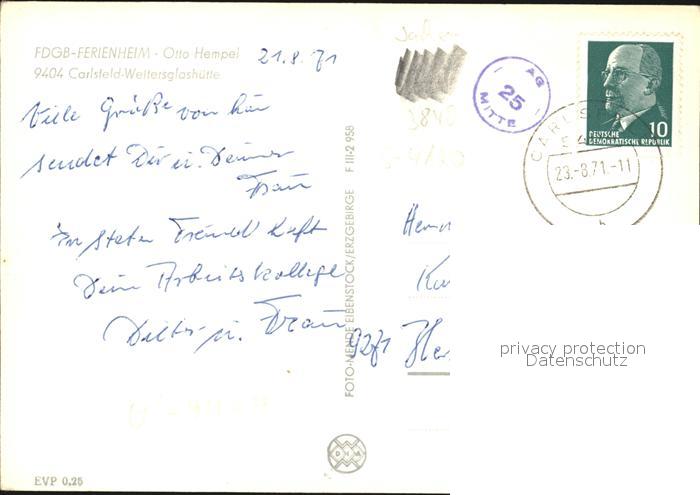 FDGB-FERIENHEIM - Otto Hempel
9404 Carlsfeld-Weitersglashütte
21.8.71
Viele Grüße von hier
sendet Dir u. Deiner
Frau
In steter Freundschaft
Dein Arbeitskollege
Dieter u. Frau
FOTO-MENDE EIBENSTOCK/ERZGEBIRGE F III-2 958
AG
25
MITTE
DEUTSCHE
DEMOKRATISCHE REPUBLIK
10
CARLSF
23.-8.71.-11
b
Herrn
9271
privacy protection
Datenschutz
DHA
EVP 0,25